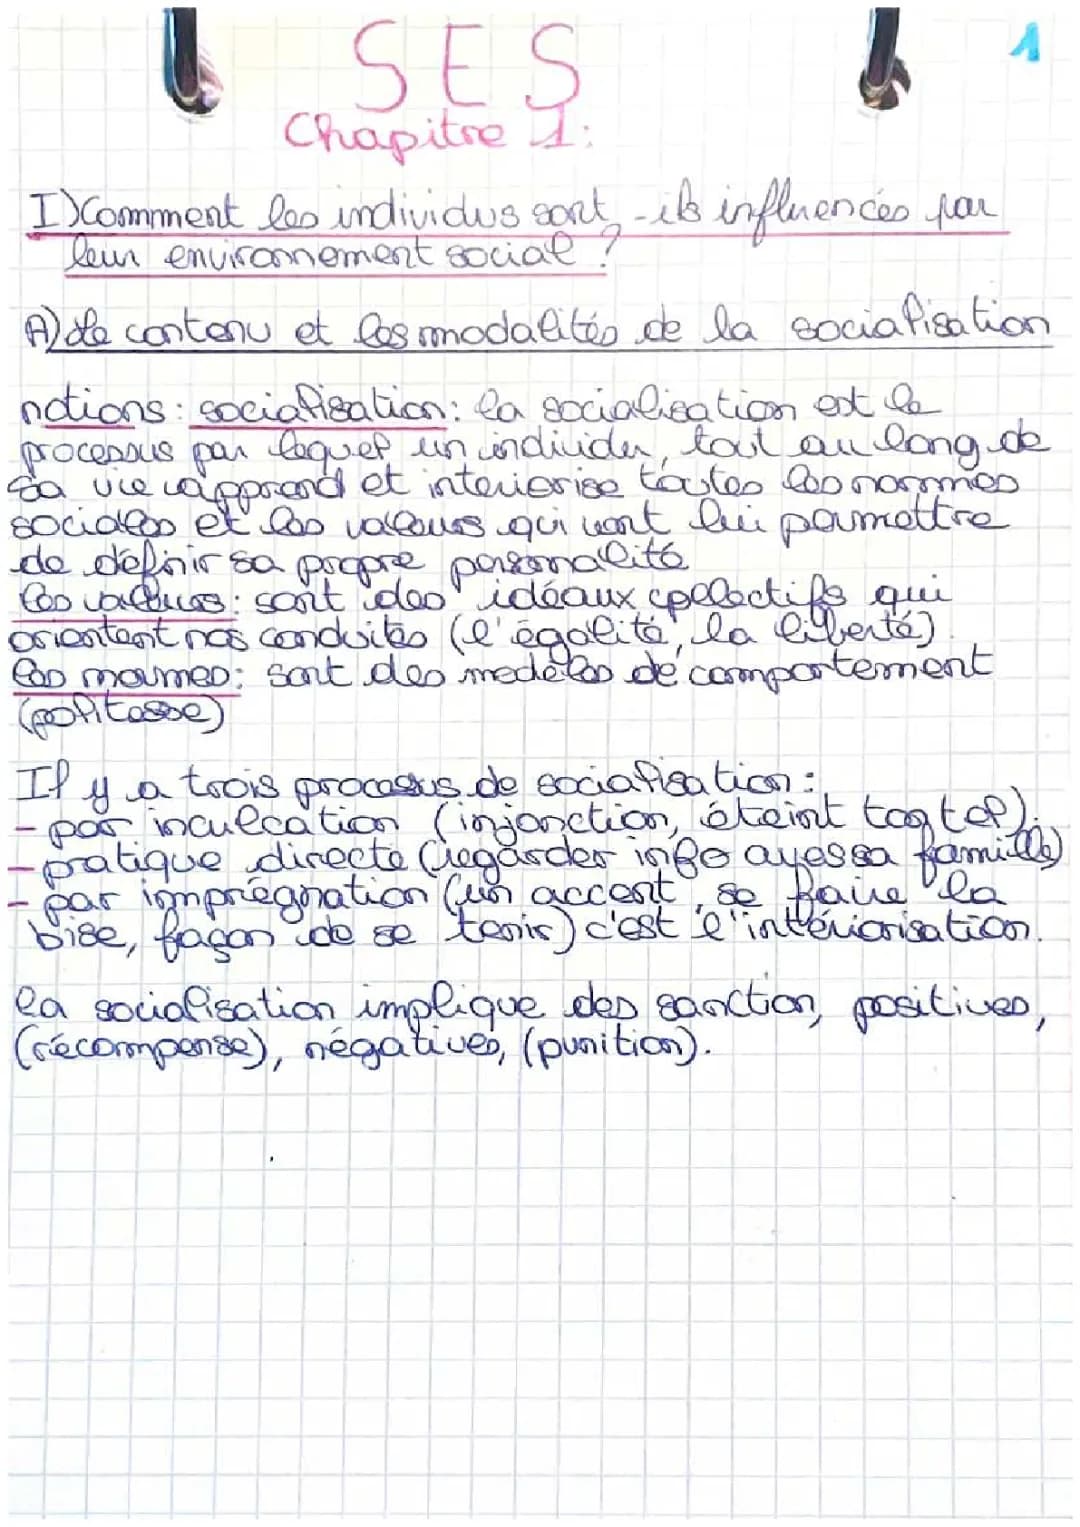 1
SES
Chapitre 1:
I) Comment les individus sont-ils influencés par
leur environnement social ?
A) Le contenu et les modalités de la socialisation
notions : socialisation : la socialisation est le
processus par lequel un individu, tout au long de
sa vie apprend et interiorise toutes les normes
sociales et les valeurs qui vont lui permettre
de définir sa propre personnalité
les valeurs : sont des idéaux collectifs qui
orientent nos conduites (l'égalité, la liberté)
les normes : sont des modèles de comportement
(politesse)
Il y a trois processus de socialisation :
- par inculcation (injonction, éteint ton tel).
- pratique directe (regarder info avec sa famille)
- par imprégnation (un accent, se faire la
bise, façon de se tenir) c'est l'intériorisation.
la socialisation implique des sanction, positives,
(récompense), négatives, (punition).